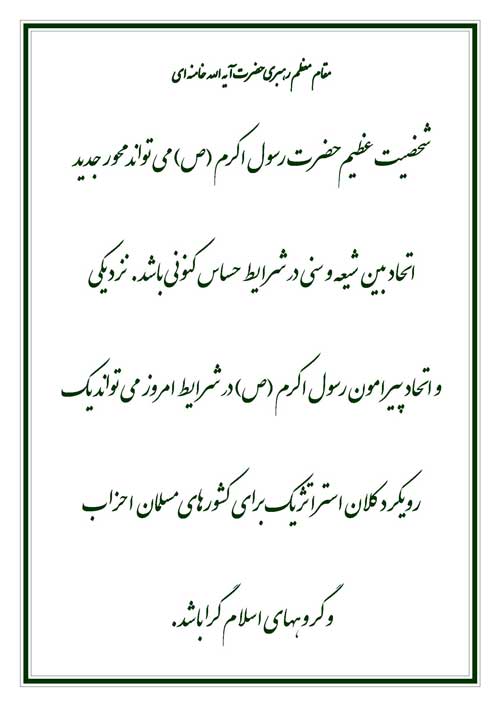 مقام معظم رهبری حضرت آیه الله خامنه ای
شخصیت عظیم حضرت رسول اکرم (ص) می تواند محور جدید
اتحاد بین شیعه و سنی در شرایط حساس کنونی باشد. نزدیکی
و اتحاد پیرامون رسول اکرم (ص) در شرایط امروز می تواند یک
رویکرد کلان استراتژیک برای کشورهای مسلمان احزاب
و گروههای اسلام گرا باشد.